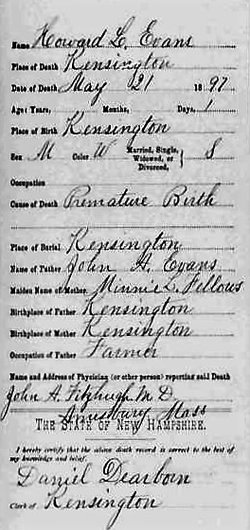 Name Howard L. Evans
Place of Death Kensington
Date of Death May 21 1897
Age: Years, Months, Days, 1
Place of Birth Kensington
Sex M Color W Married, Single, Widowed, or Divorced, S
Occupation
Cause of Death Premature Birth
Place of Burial Kensington
Name of Father John H. Evans
Maiden Name of Mother, Minnie L. Fellows
Birthplace of Father Kensington
Birthplace of Mother Kensington
Occupation of Father Farmer
Name and Address of Physician (or other person) reporting said Death
John A. Fitzhugh M.D.
Amesbury Mass
THE STATE OF NEW HAMPSHIRE.
I hereby certify that the above death record is correct to the best
of my knowledge and belief.
Daniel Dearborn
Clerk of Kensington